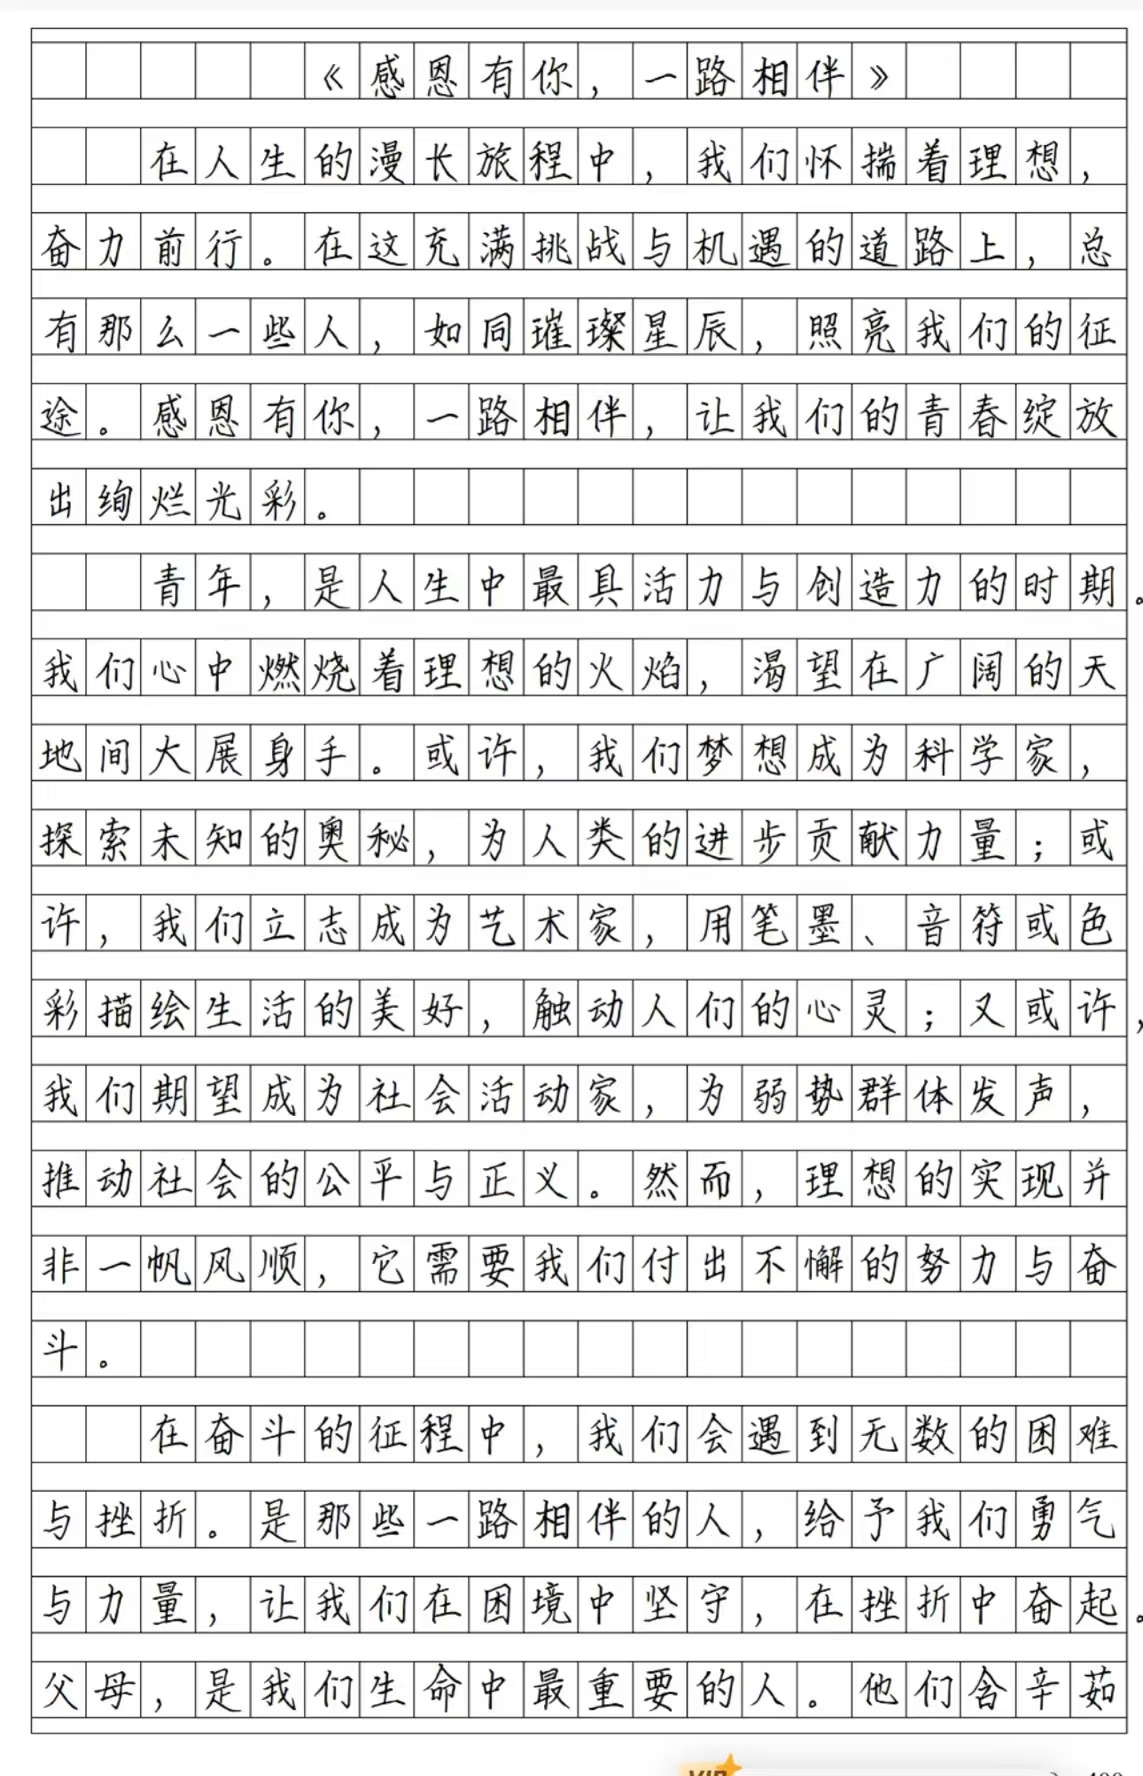 《感恩有你，一路相伴》
在人生的漫长旅程中，我们怀揣着理想，
奋力前行。在这充满挑战与机遇的道路上，总
有那么一些人，如同璀璨星辰，照亮我们的征
途。感恩有你，一路相伴，让我们的青春绽放
出绚烂光彩。
青年，是人生中最具活力与创造力的时期。
我们心中燃烧着理想的火焰，渴望在广阔的天
地间大展身手。或许，我们梦想成为科学家，
探索未知的奥秘，为人类的进步贡献力量；或
许，我们立志成为艺术家，用笔墨、音符或色
彩描绘生活的美好，触动人们的心灵；又或许，
我们期望成为社会活动家，为弱势群体发声，
推动社会的公平与正义。然而，理想的实现并
非一帆风顺，它需要我们付出不懈的努力与奋
斗。
在奋斗的征程中，我们会遇到无数的困难
与挫折。是那些一路相伴的人，给予我们勇气
与力量，让我们在困境中坚守，在挫折中奋起。
父母，是我们生命中最重要的人。他们含辛茹